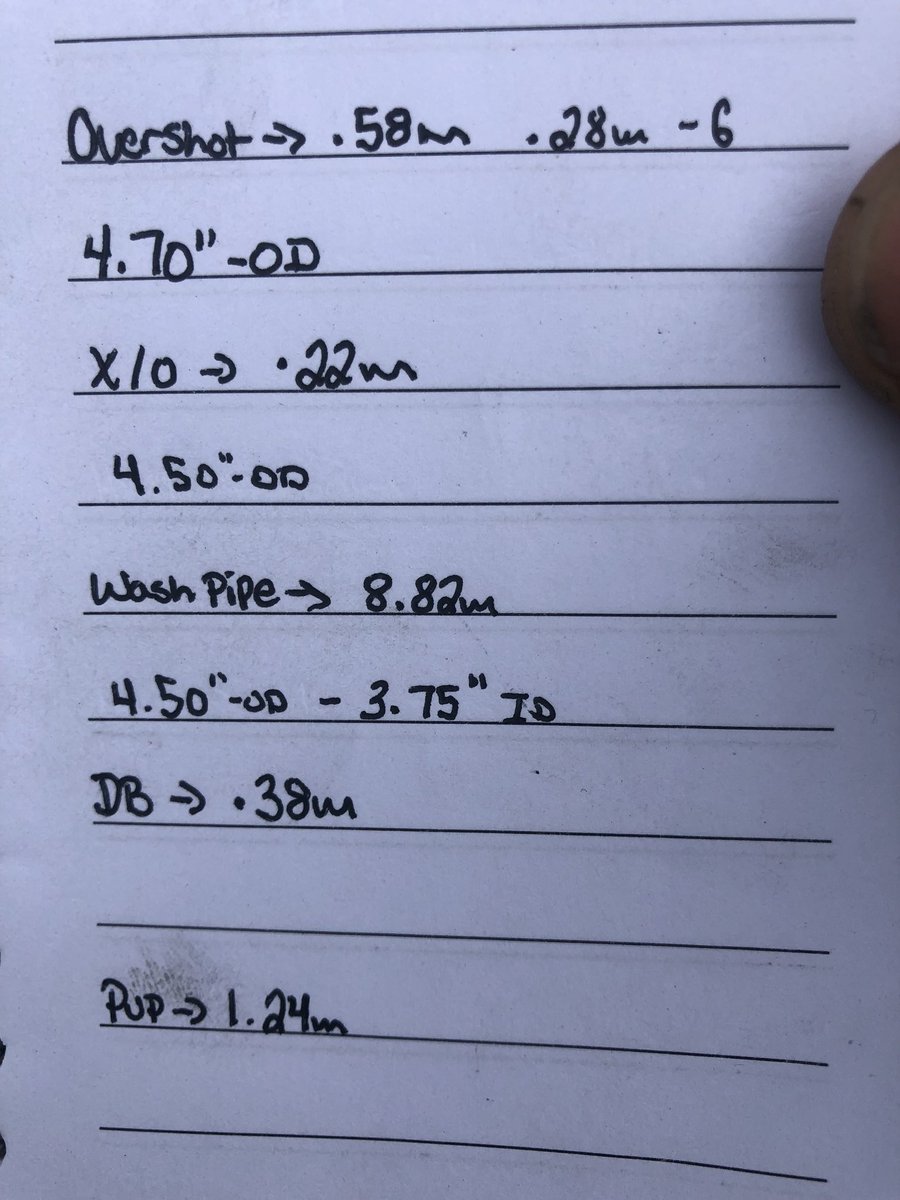 Overshot → .58m .28m - 6
4.70" - OD
X/O → .22m
4.50" - OD
Wash Pipe → 8.82m
4.50" - OD - 3.75" ID
DB → .38m
Pup → 1.24m